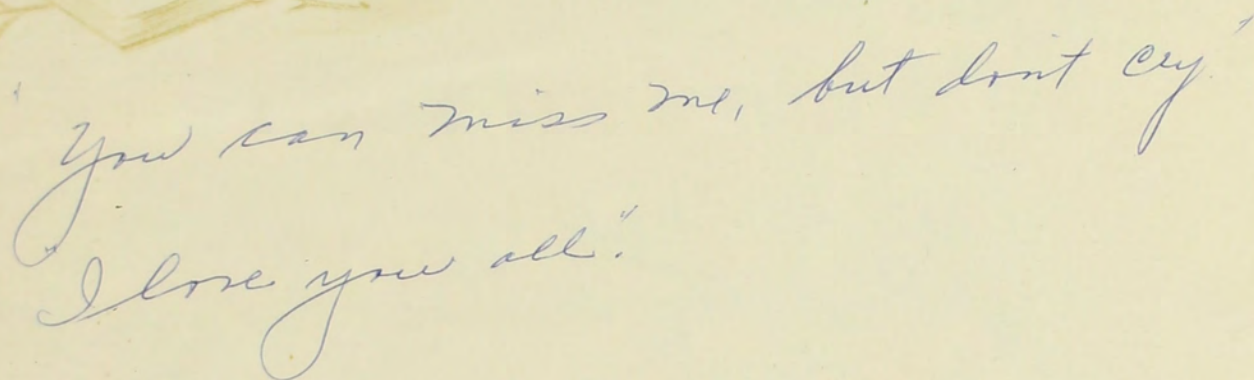 "You can miss me, but don't cry."
"I love you all".